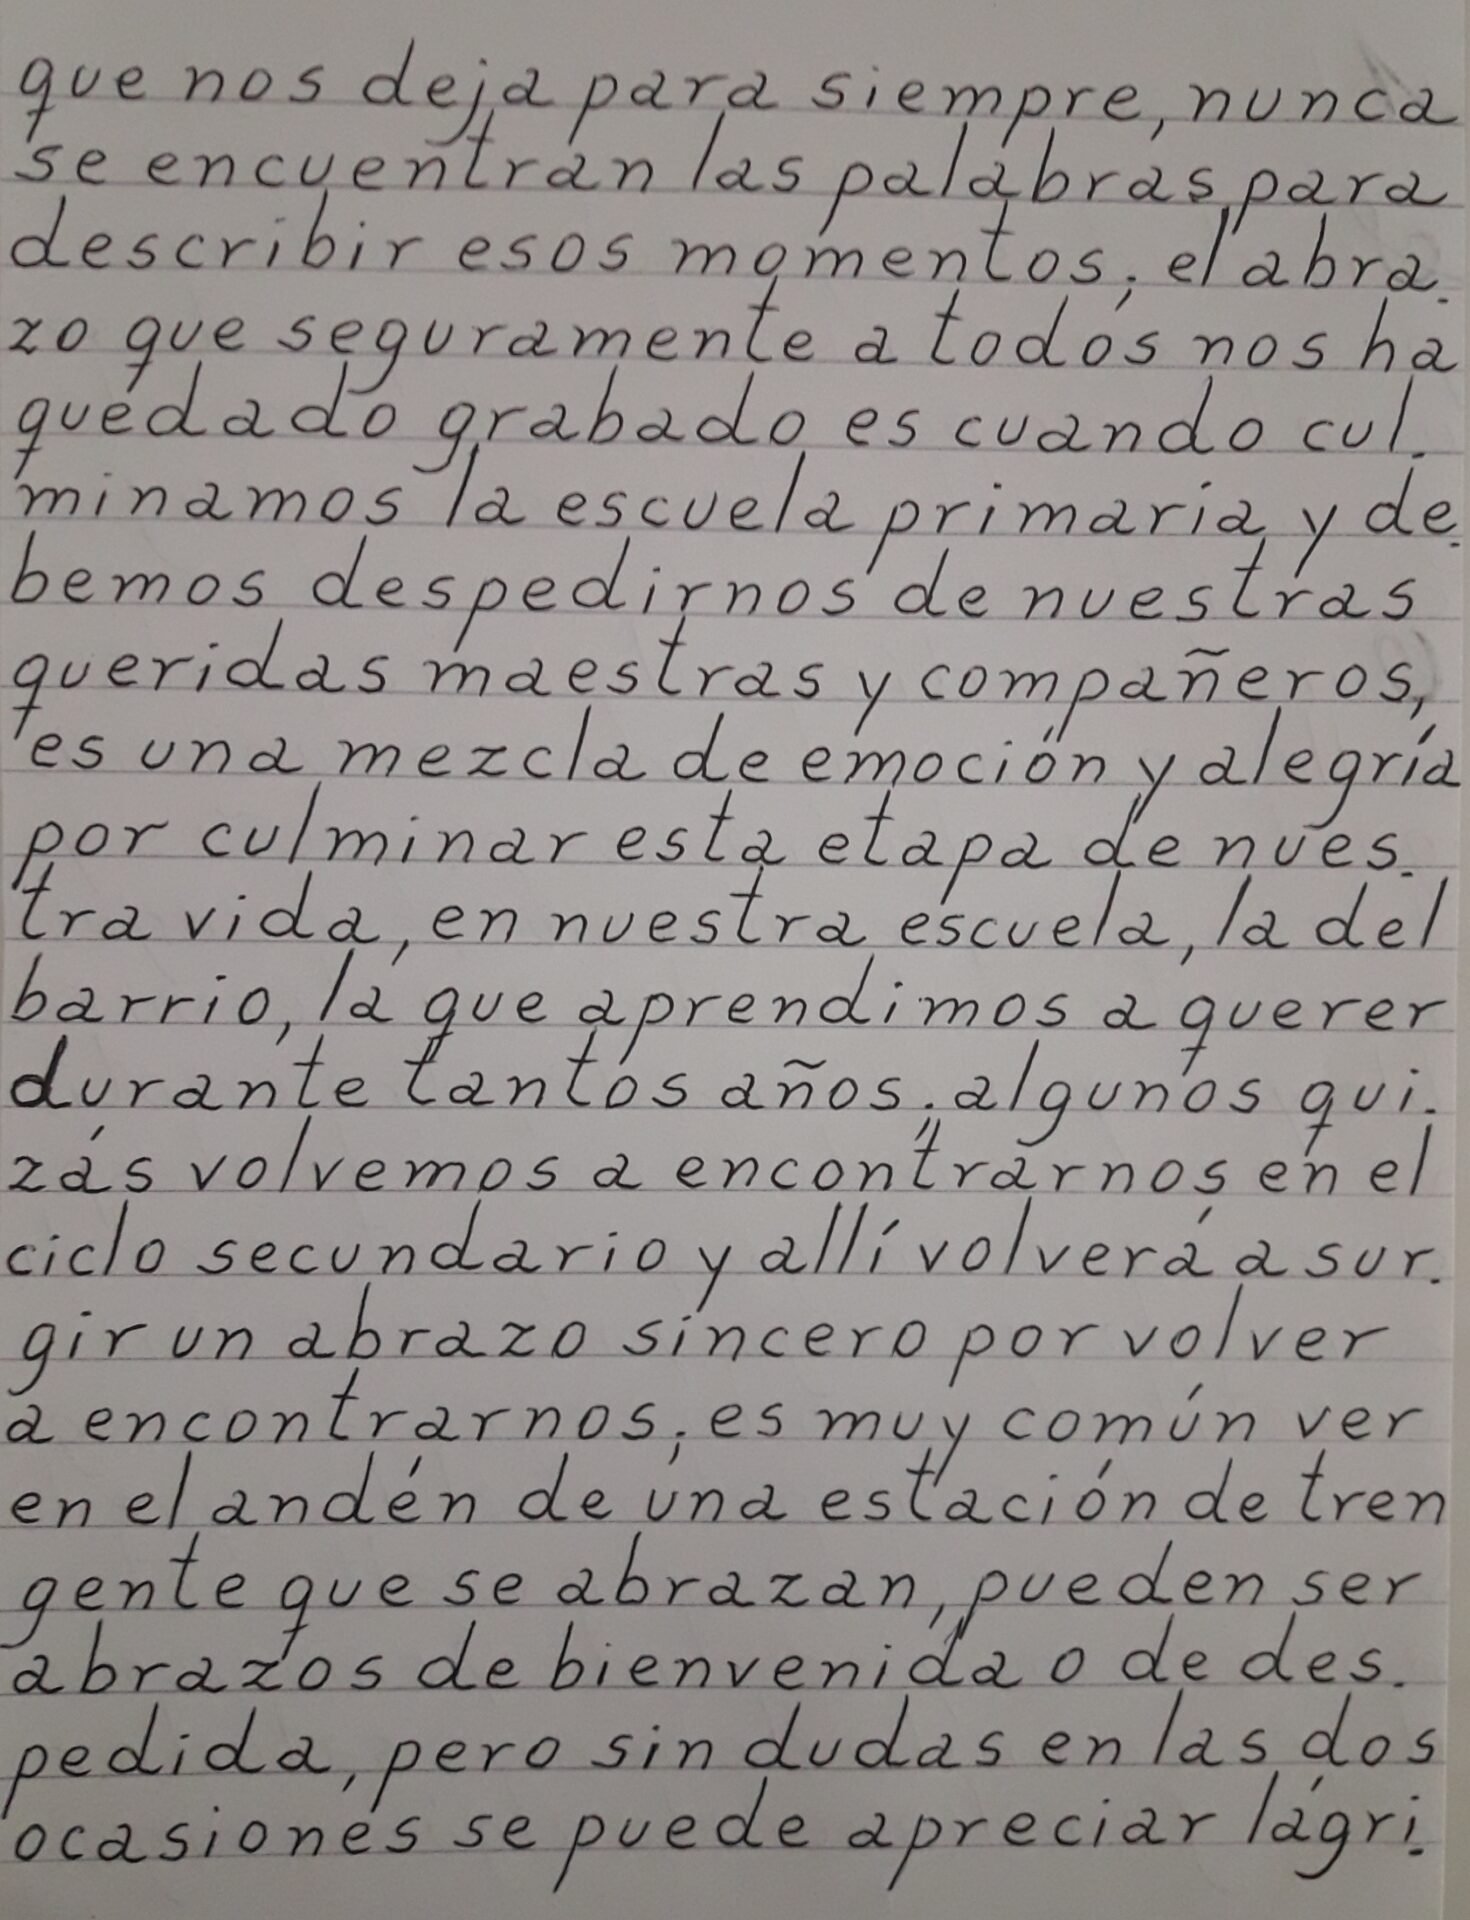 que nos deja para siempre, nunca
se encuentran las palabras para
describir esos momentos; el abra-
zo que seguramente a todos nos ha
quedado grabado es cuando cul-
minamos la escuela primaria y de-
bemos despedirnos de nuestras
queridas maestras y compañeros,
es una mezcla de emoción y alegría
por culminar esta etapa de nues-
tra vida, en nuestra escuela, la del
barrio, la que aprendimos a querer
durante tantos años; algunos qui-
zás volvemos a encontrarnos en el
ciclo secundario y allí volverá a sur-
gir un abrazo sincero por volver
a encontrarnos; es muy común ver
en el andén de una estación de tren
gente que se abrazan, pueden ser
abrazos de bienvenida o de des-
pedida, pero sin dudas en las dos
ocasiones se puede apreciar lágri-